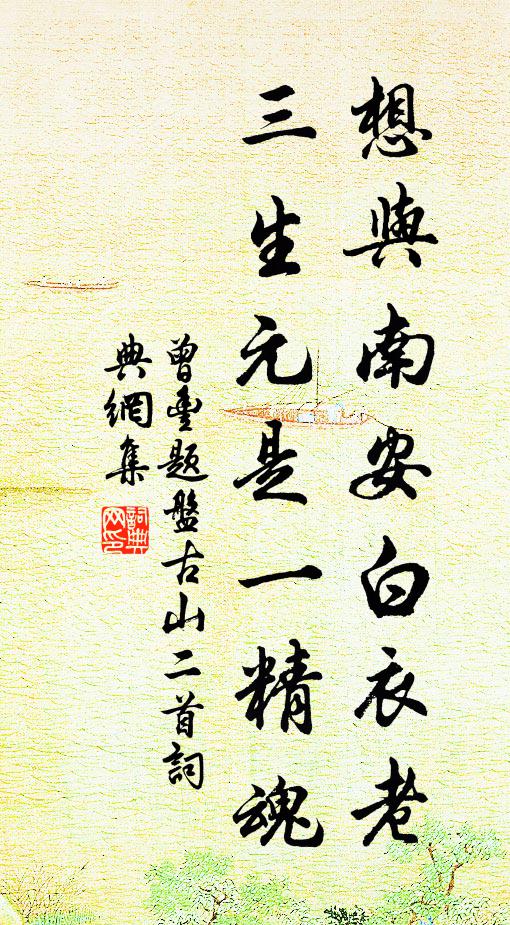 想與南安白衣老
三生元是一精魂
曾豐題盤古山二首詞
典網集
詞典
网印